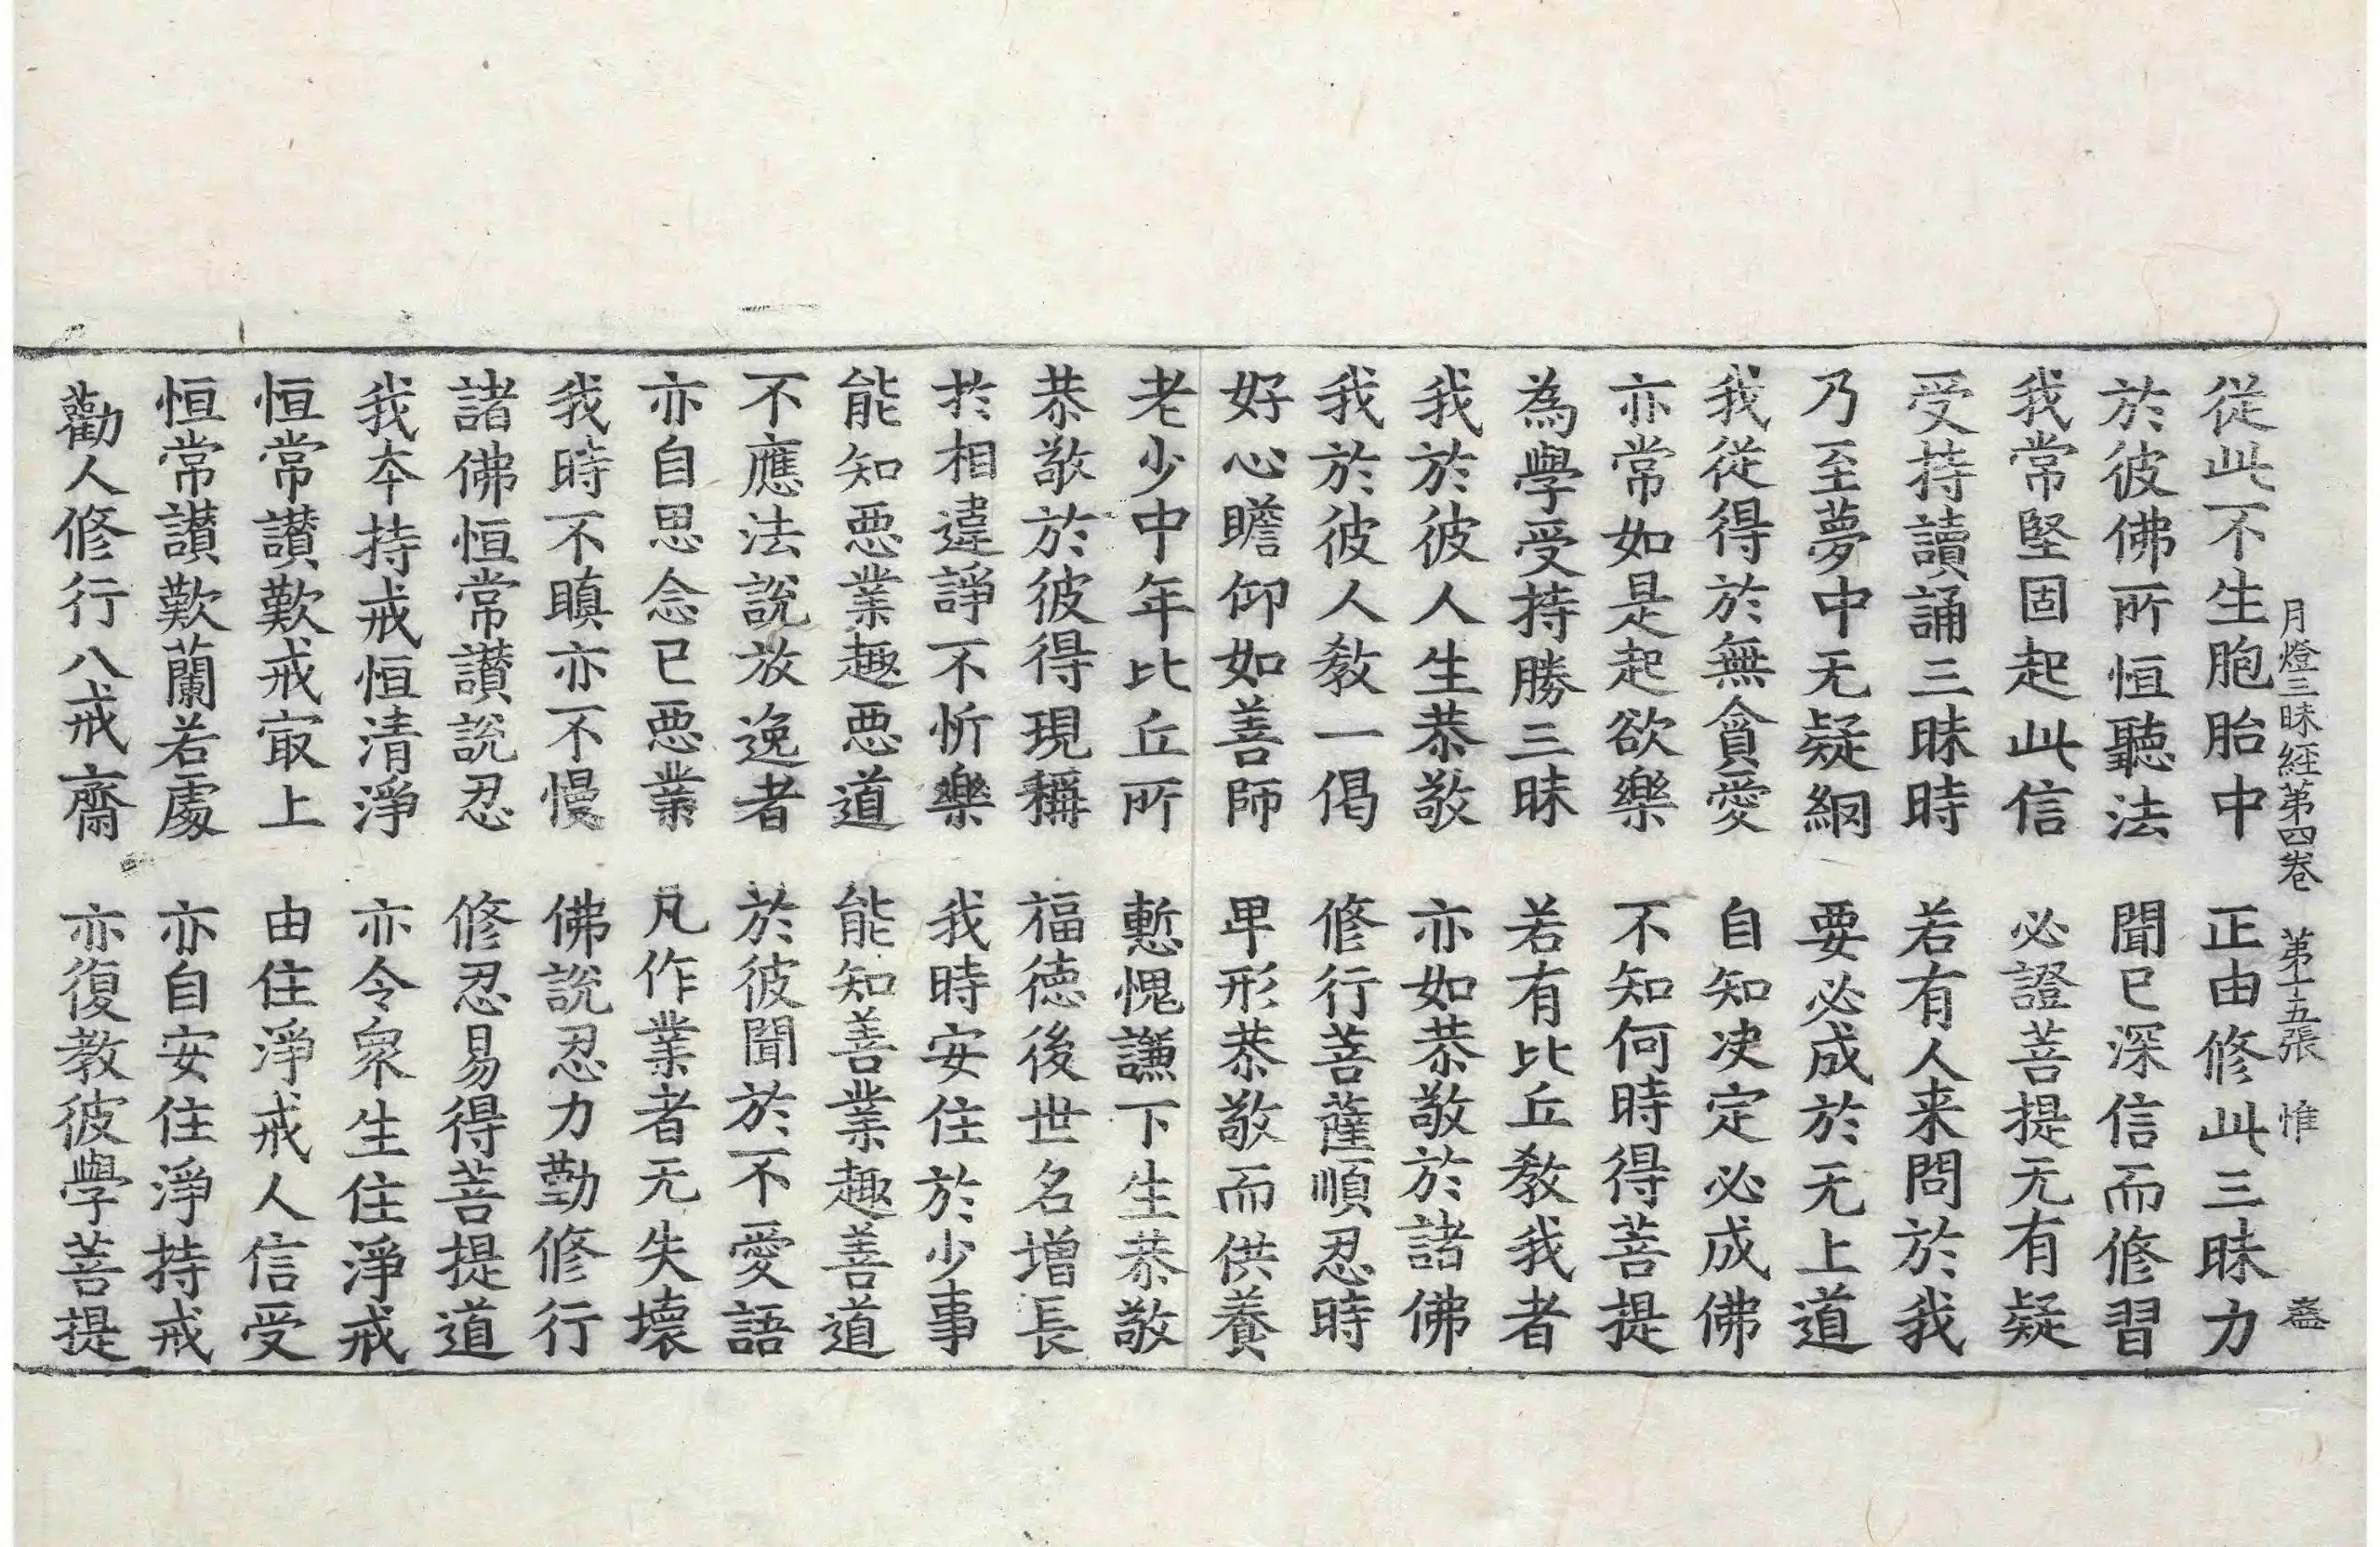 月燈三昧経第四卷 第十五張 惟
從此不生胞胎中 正由修此三昧力
於彼佛所恒聽法 聞已深信而修習
我常堅固起此信 必證菩提无有疑
受持讀誦三昧時 若有人来問於我
乃至夢中无疑網 要必成於无上道
我從得於無貪愛 自知决定必成佛
亦常如是起欲樂 不知何時得菩提
為學受持勝三昧 若有比丘教我者
我於彼人生恭敬 亦如恭敬於諸佛
我於彼人教一偈 修行菩薩順忍時
好心瞻仰如善師 卑形恭敬而供養
老少中年比丘所 慙愧謙下生恭敬
恭敬於彼得現稱 福德後世名增長
於相違諍不忻樂 我時安住於少事
能知惡業趣惡道 能知善業趣善道
不應法說放逸者 於彼聞於不愛語
亦自思念已惡業 凡作業者无失壞
我時不瞋亦不慢 佛說忍力勤修行
諸佛恒常讃說忍 修忍易得菩提道
我夲持戒恒清淨 亦令衆生住淨戒
恒常讃歎戒㝡上 由住淨戒人信受
恒常讃歎蘭若處 亦自安住淨持戒
勸人修行八戒齋 亦復教彼學菩提